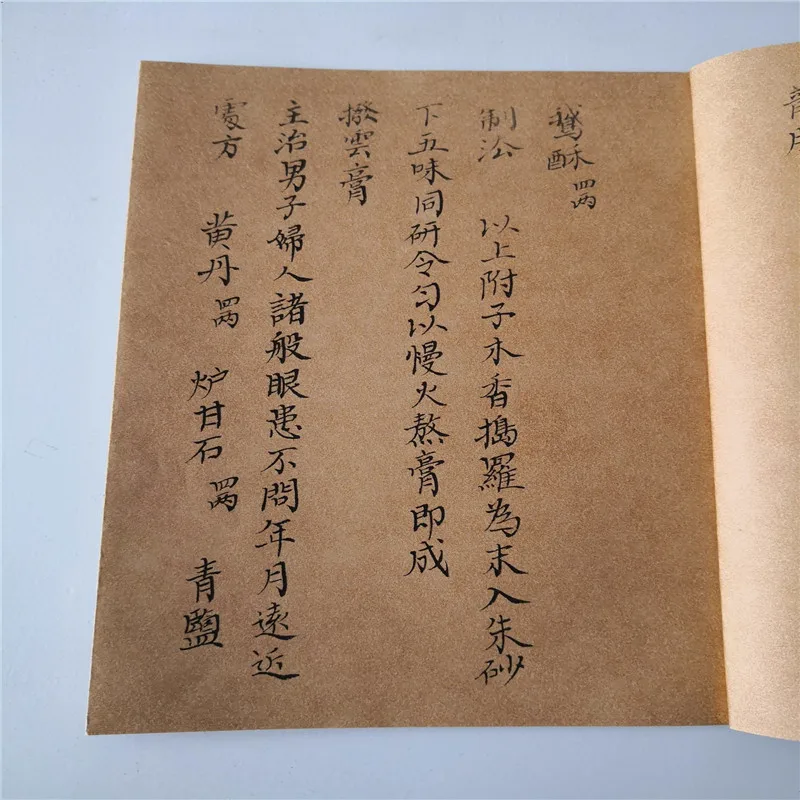 鵝酥 四两
制法 以上附子木香搗羅為末入朱砂
下五味同研令匀以慢火熬膏即成
撥雲膏
主治男子婦人諸般眼患不問年月遠近
處方 黄丹 四两 炉甘石 四两 青鹽